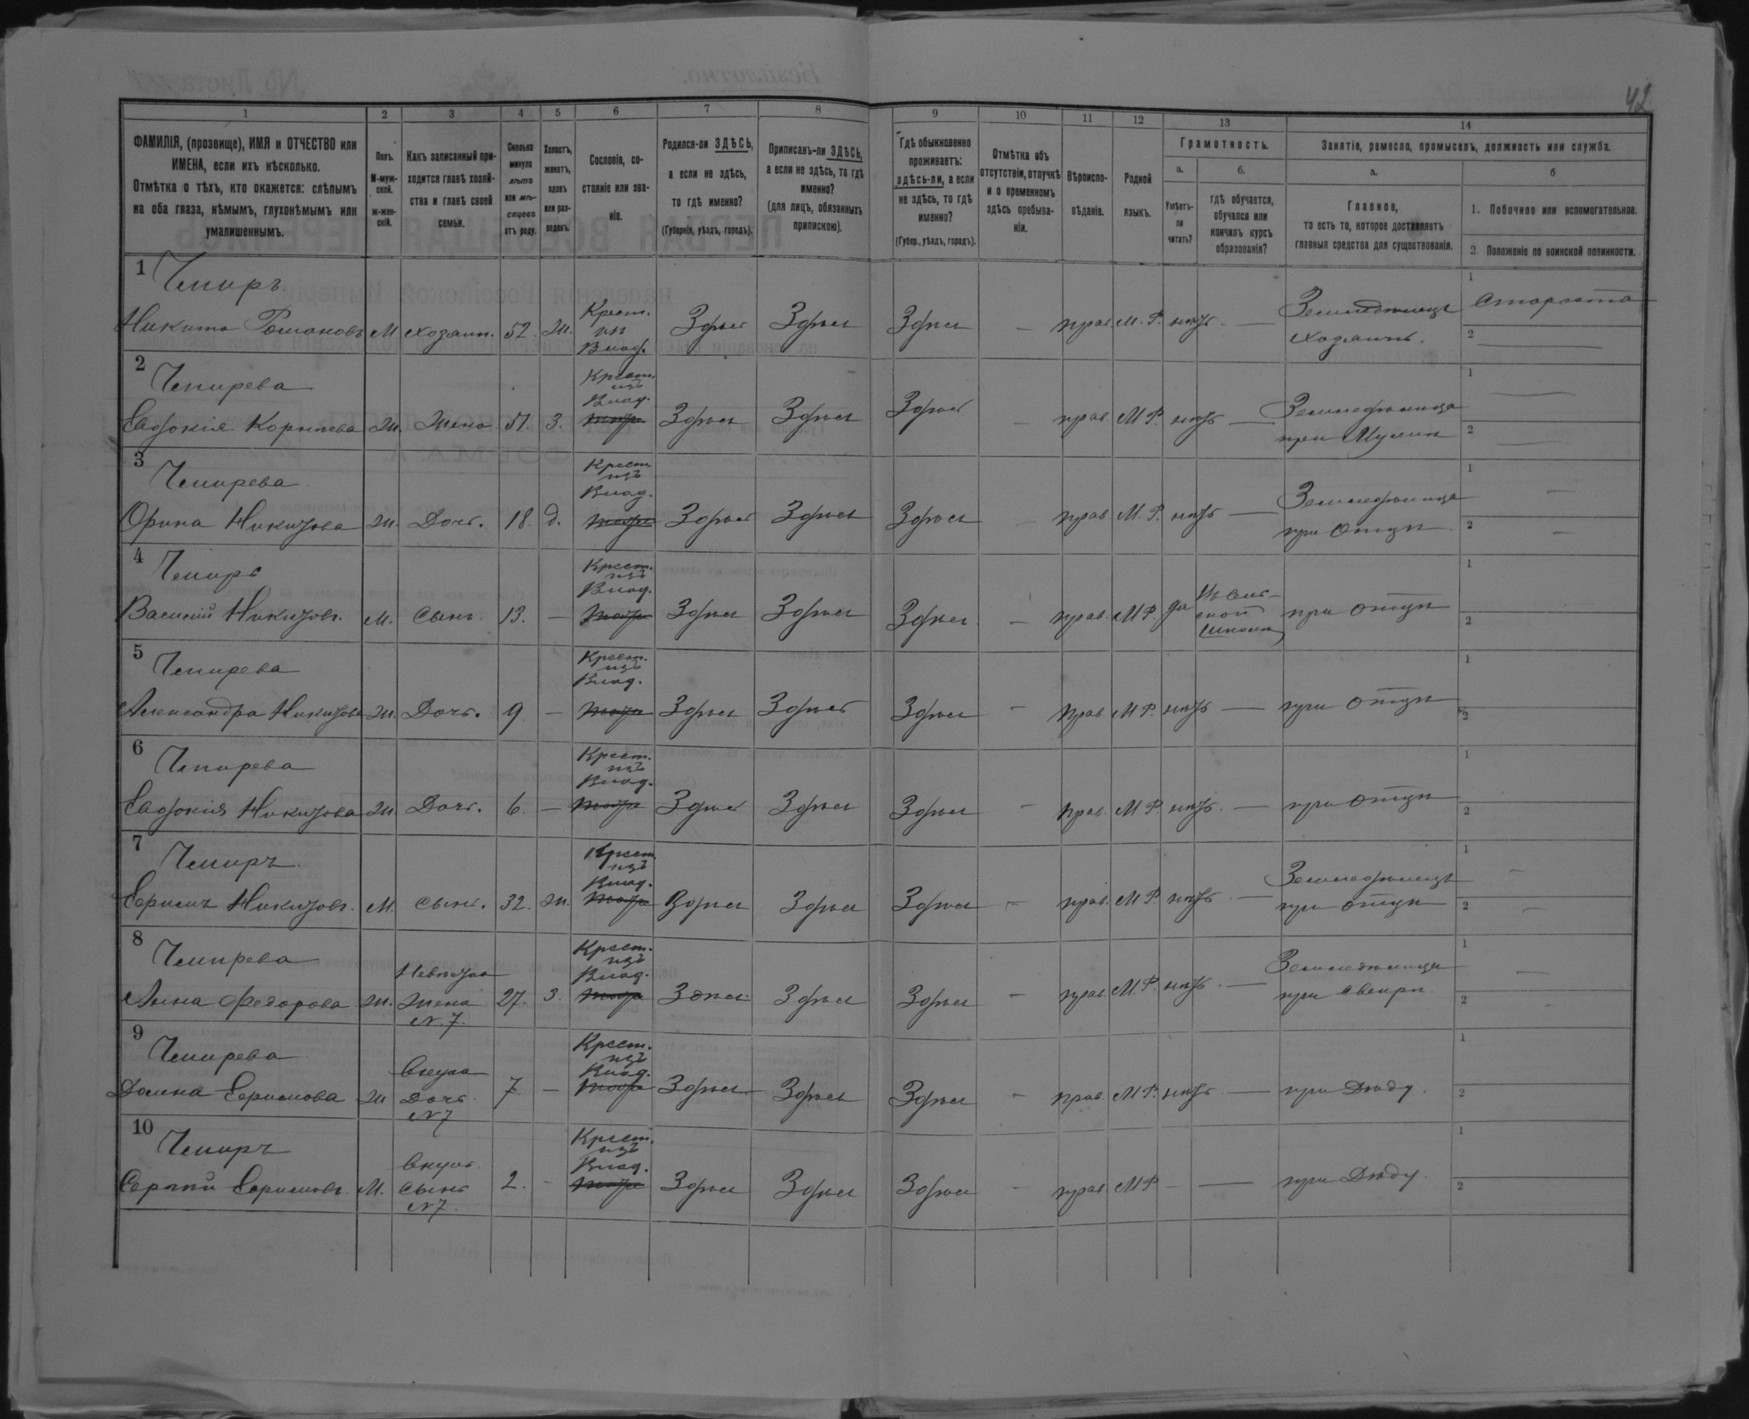 42
1 2 3 4 5 6 7 8 9 10 11 12 13 14
ФАМИЛІЯ, (прозвище), ИМЯ и ОТЧЕСТВО или
ИМЕНА, если ихъ нѣсколько.
Отмѣтка о тѣхъ, кто окажется: слѣпымъ
на оба глаза, нѣмымъ, глухонѣмымъ или
умалишеннымъ.
Полъ.
М-муж-
ской.
ж-жен-
скій.
Какъ записанный при-
ходится главѣ хозяй-
ства и главѣ своей
семьи.
Сколько
минуло
лѣтъ
или мѣ-
сяцевъ
отъ роду.
Холостъ,
женатъ,
вдовъ
или раз-
веденъ.
Сословіе, со-
стояніе или зва-
ніе.
Родился-ли ЗДѢСЬ,
а если не здѣсь,
то гдѣ именно?
(Губернія, уѣздъ, городъ).
Приписанъ-ли ЗДѢСЬ,
а если не здѣсь, то гдѣ
именно?
(для лицъ, обязанныхъ
припискою).
Гдѣ обыкновенно
проживаетъ:
здѣсь-ли, а если
не здѣсь, то гдѣ
именно?
(Губер., уѣздъ, городъ).
Отмѣтка объ
отсутствіи, отлучкѣ
и о временномъ
здѣсь пребыва-
ніи.
Вѣроиспо-
вѣданіе.
Родной
языкъ.
Грамотность.
а.
Умѣетъ-
ли
читать?
б.
гдѣ обучается,
обучался или
кончилъ курсъ
образованія?
Занятіе, ремесло, промыселъ, должность или служба.
а.
Главное,
то есть то, которое доставляетъ
главныя средства для существованія.
б
1. Побочное или вспомогательное.
2. Положеніе по воинской повинности.
1 Чепиръ
Никита Романовъ М хозяин. 52. ж. Крест. Влад. Здѣсь Здѣсь Здѣсь — прав. М. Р. нѣтъ — Земледѣлецъ хозяинъ. 1 Староста 2 —
2 Чепирева
Евдокія Корнѣева ж. Жена 51. з. Крест. изъ Влад. Здѣсь Здѣсь Здѣсь — прав. М. Р. нѣтъ — Земледѣлица при Мужѣ 1 — 2 —
3 Чепирева
Орина Никитова ж. Дочь. 18. д. Крест. изъ Влад. Здѣсь Здѣсь Здѣсь прав М. Р. нѣтъ — Земледѣлица при Отцѣ 1 — 2 —
4 Чепиръ
Василий Никитовъ. М. Сынъ. 13. — Крест. изъ Влад. Здѣсь Здѣсь Здѣсь — прав. М Р. да Въ сель- ской школѣ при отцѣ 1 2
5 Чепирева
Александра Никитова ж. Дочь. 9 — Крест. изъ Влад. Здѣсь Здѣсь Здѣсь — прав М Р. нѣтъ — при отцѣ 1 2
6 Чепирева
Евдокія Никитова ж. Дочь. 6. — Крест. изъ Влад. Здѣсь Здѣсь Здѣсь — прав. М Р. нѣтъ. — при отцѣ 1 2
7 Чепиръ
Никитовъ. М. Сынъ. 32. ж. Крест. изъ Влад. Здѣсь Здѣсь Здѣсь — прав. М Р нѣтъ. — Земледѣлецъ при отцѣ 1 — 2 —
8 Чепирева
Анна Федорова ж. Невѣстка Жена N. 7. 27. з. Крест. изъ Влад. Здѣсь Здѣсь Здѣсь — прав. М. Р. нѣтъ. — Земледѣлица при свекрѣ 1 — 2
9 Чепирева
Домна ж Внучка Дочь N 7 7 — Крест. изъ Влад. Здѣсь Здѣсь Здѣсь — прав. М Р. нѣтъ — при Дѣду. 1 2
10 Чепиръ
Сергѣй М. Внукъ. Сынъ N 7. 2. — Крест. изъ Влад. Здѣсь Здѣсь Здѣсь — прав. М Р — — при Дѣду. 1 2